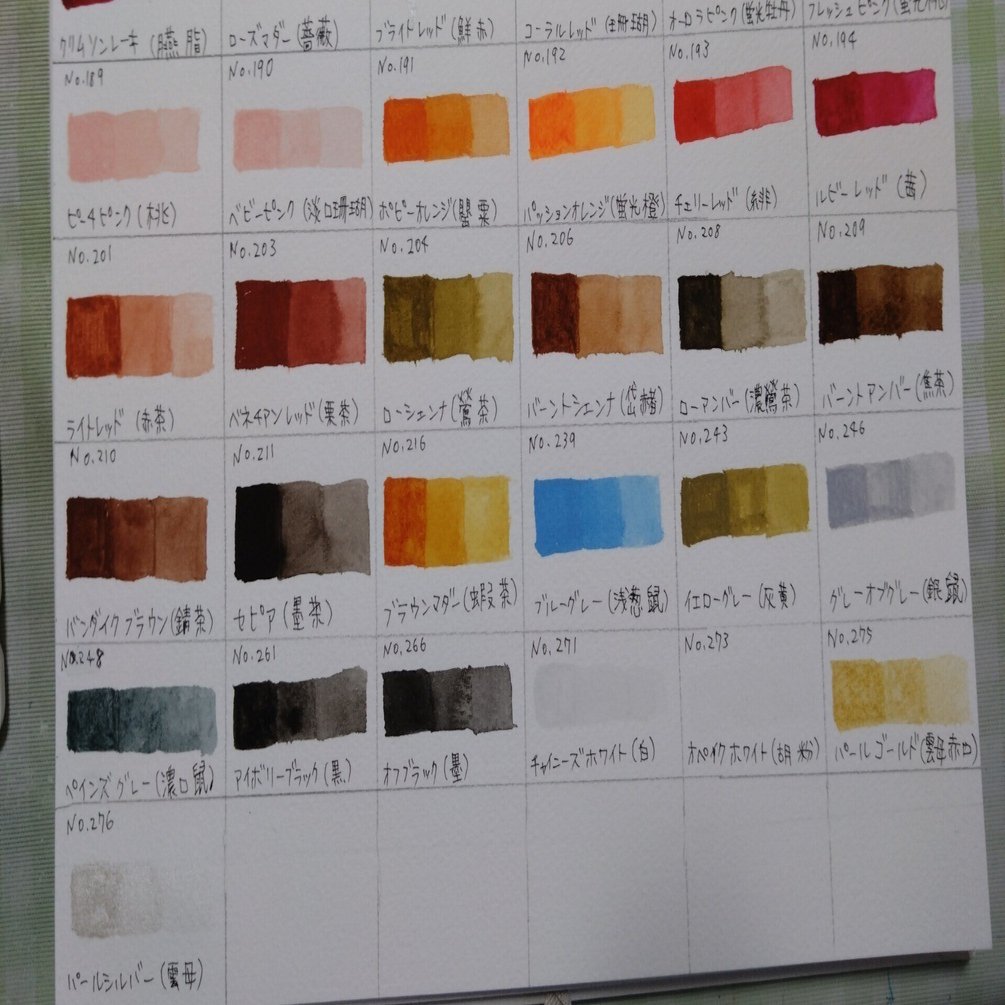 クリムソンレーキ (臙脂)
ローズマダー (薔薇)
ブライトレッド (鮮赤)
コーラルレッド (珊瑚)
オーロラピンク (蛍光牡丹)
フレッシュピンク (蛍光桃)
No.189
No.190
No.191
No.192
No.193
No.194
ピーチピンク (桃)
ベビーピンク (淡口珊瑚)
ポピーオレンジ (罌粟)
パッションオレンジ (蛍光橙)
チェリーレッド (緋)
ルビーレッド (茜)
No.201
No.203
No.204
No.206
No.208
No.209
ライトレッド (赤茶)
ベネチアンレッド (栗茶)
ローシェンナ (鶯茶)
バーントシェンナ (岱赭)
ローアンバー (濃鶯茶)
バーントアンバー (焦茶)
No.210
No.211
No.216
No.239
No.243
No.246
バンダイクブラウン (錆茶)
セピア (墨茶)
ブラウンマダー (蝦茶)
ブルーグレー (浅葱鼠)
イエローグレー (灰黄)
グレーオブグレー (銀鼠)
No.248
No.261
No.266
No.271
No.273
No.275
ペインズグレー (濃口鼠)
アイボリーブラック (黒)
オフブラック (墨)
チャイニーズホワイト (白)
オペイクホワイト (胡粉)
パールゴールド (雲母赤口)
No.276
パールシルバー (雲母)